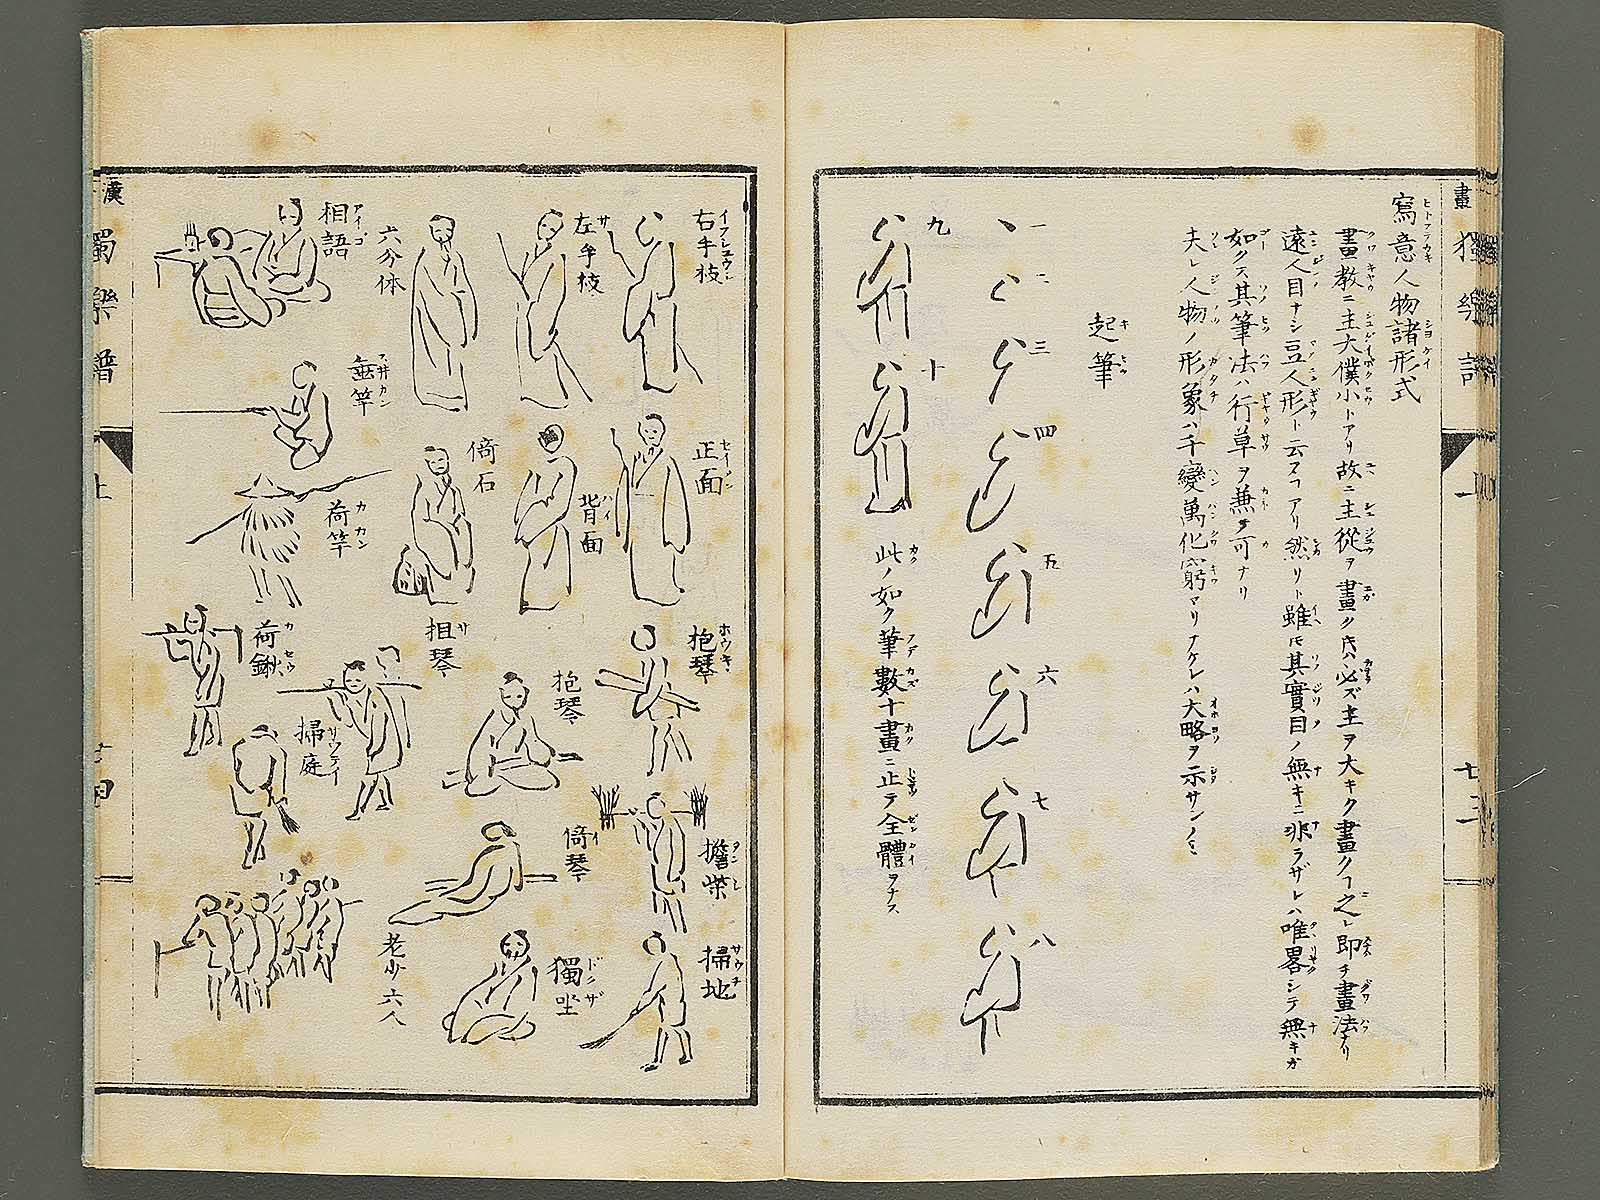 寫意人物諸形式
畫教ニ主大僕小トアリ故ニ主從ヲ畫ク氏ハ必ズ主ヲ大キク畫クヿ之レ即チ畫法ナリ
遠人目ナシ豆人形ト云フヿアリ然リト雖トモ其實目ノ無キニ非ラザレハ唯畧シテ無キガ
如クス其筆法ハ行草ヲ兼テ可ナリ
夫レ人物ノ形象ハ千變萬化窮マリナケレハ大略ヲ示サンノミ
起筆
一
二
三
四
五
六
七
八
九
十
此ノ如ク筆數十畫ニ止テ全體ヲナス
右手枝
正面
抱琴
擔柴
掃地
左手枝
背面
抱琴
倚琴
獨坐
六分体
倚石
担琴
老少六人
相語
垂竿
荷竿
荷鍬
掃庭
畫
獨樂譜
上
漢
獨樂譜
上